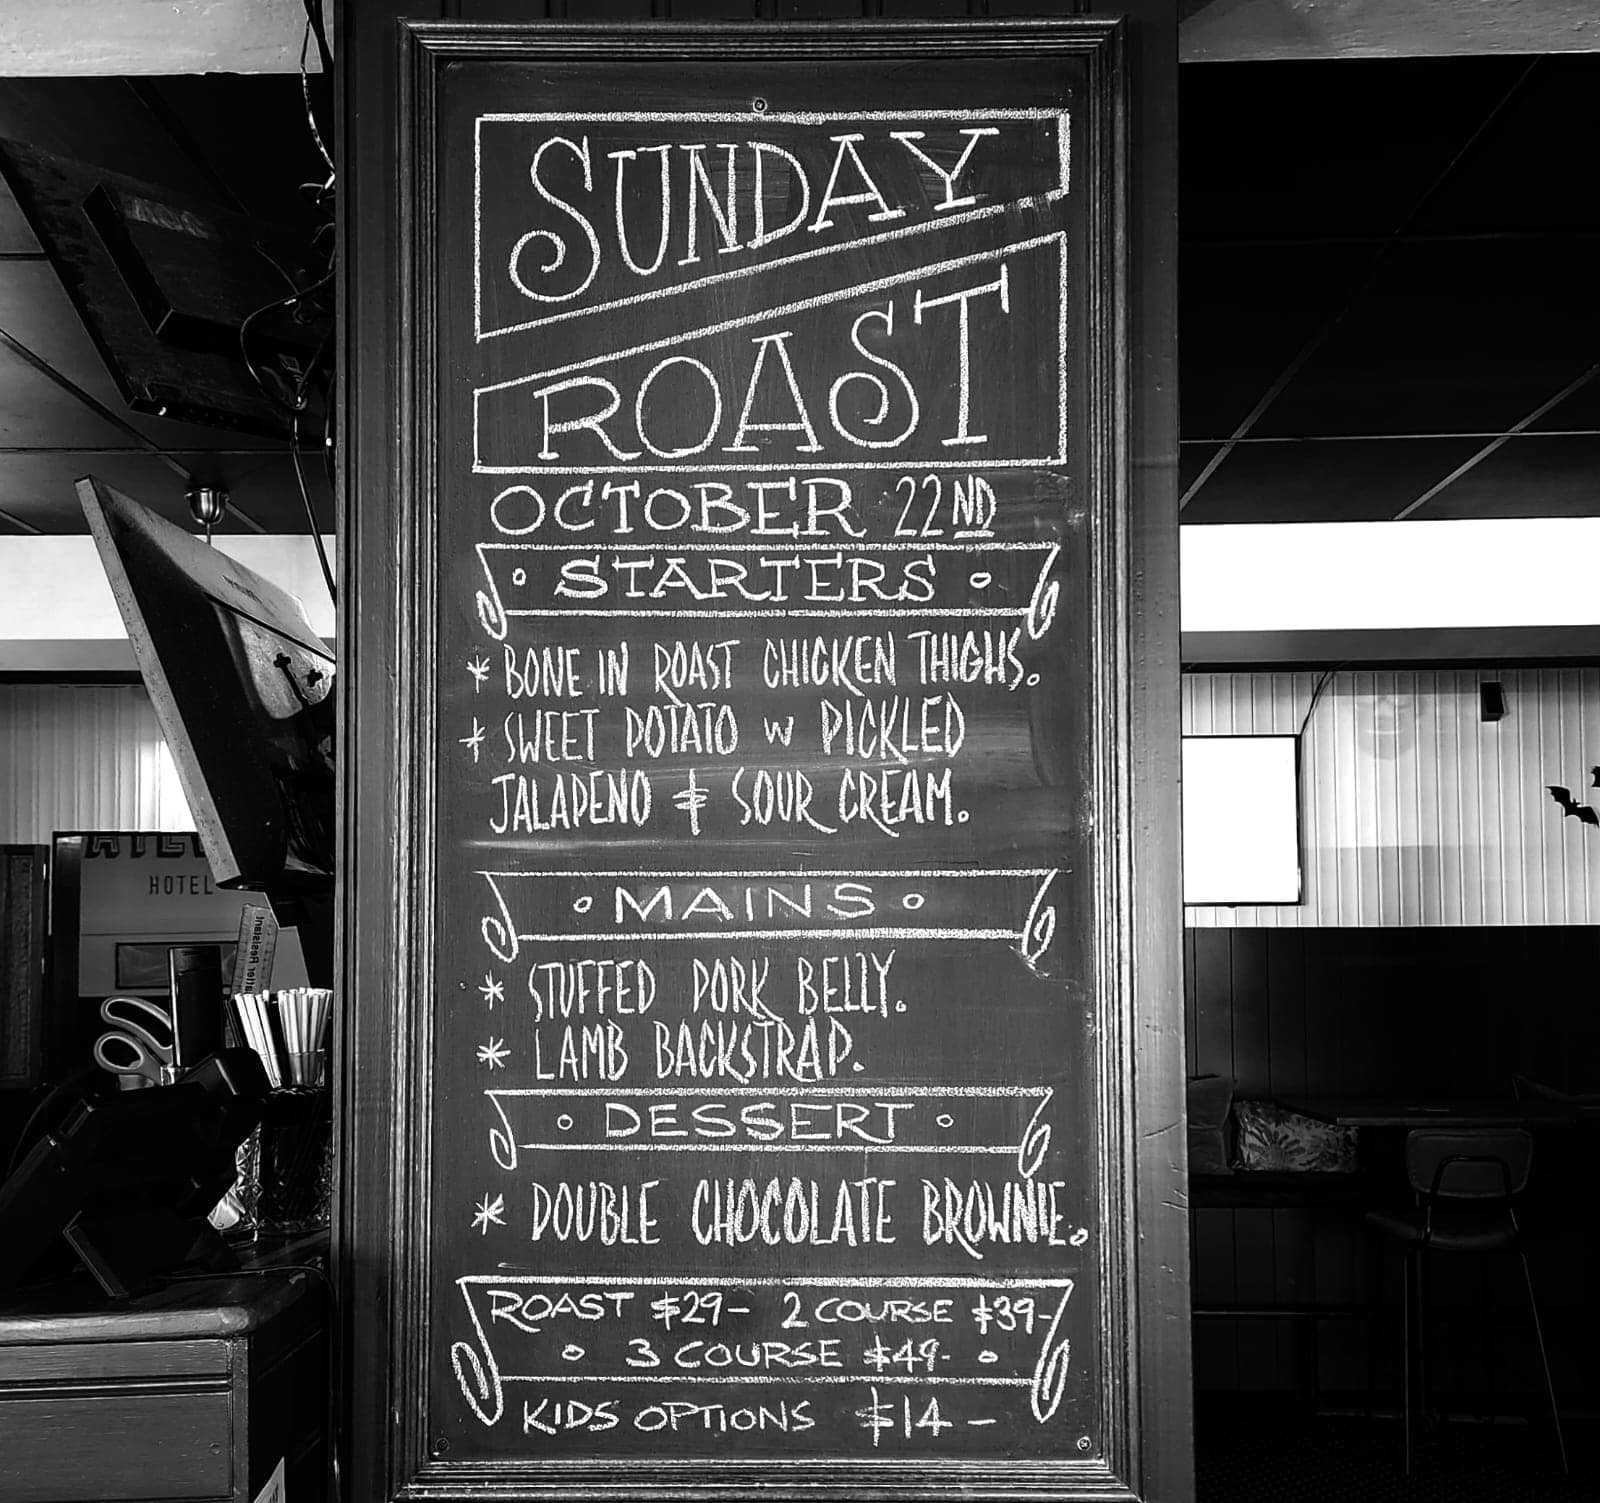 SUNDAY
ROAST
OCTOBER 22ND
STARTERS
* BONE IN ROAST CHICKEN THIGHS.
* SWEET POTATO W PICKLED
JALAPENO & SOUR CREAM.
MAINS
* STUFFED PORK BELLY.
* LAMB BACKSTRAP.
DESSERT
* DOUBLE CHOCOLATE BROWNIE.
ROAST $29- 2 COURSE $39-
3 COURSE $49-
KIDS OPTIONS $14-
HOTEL